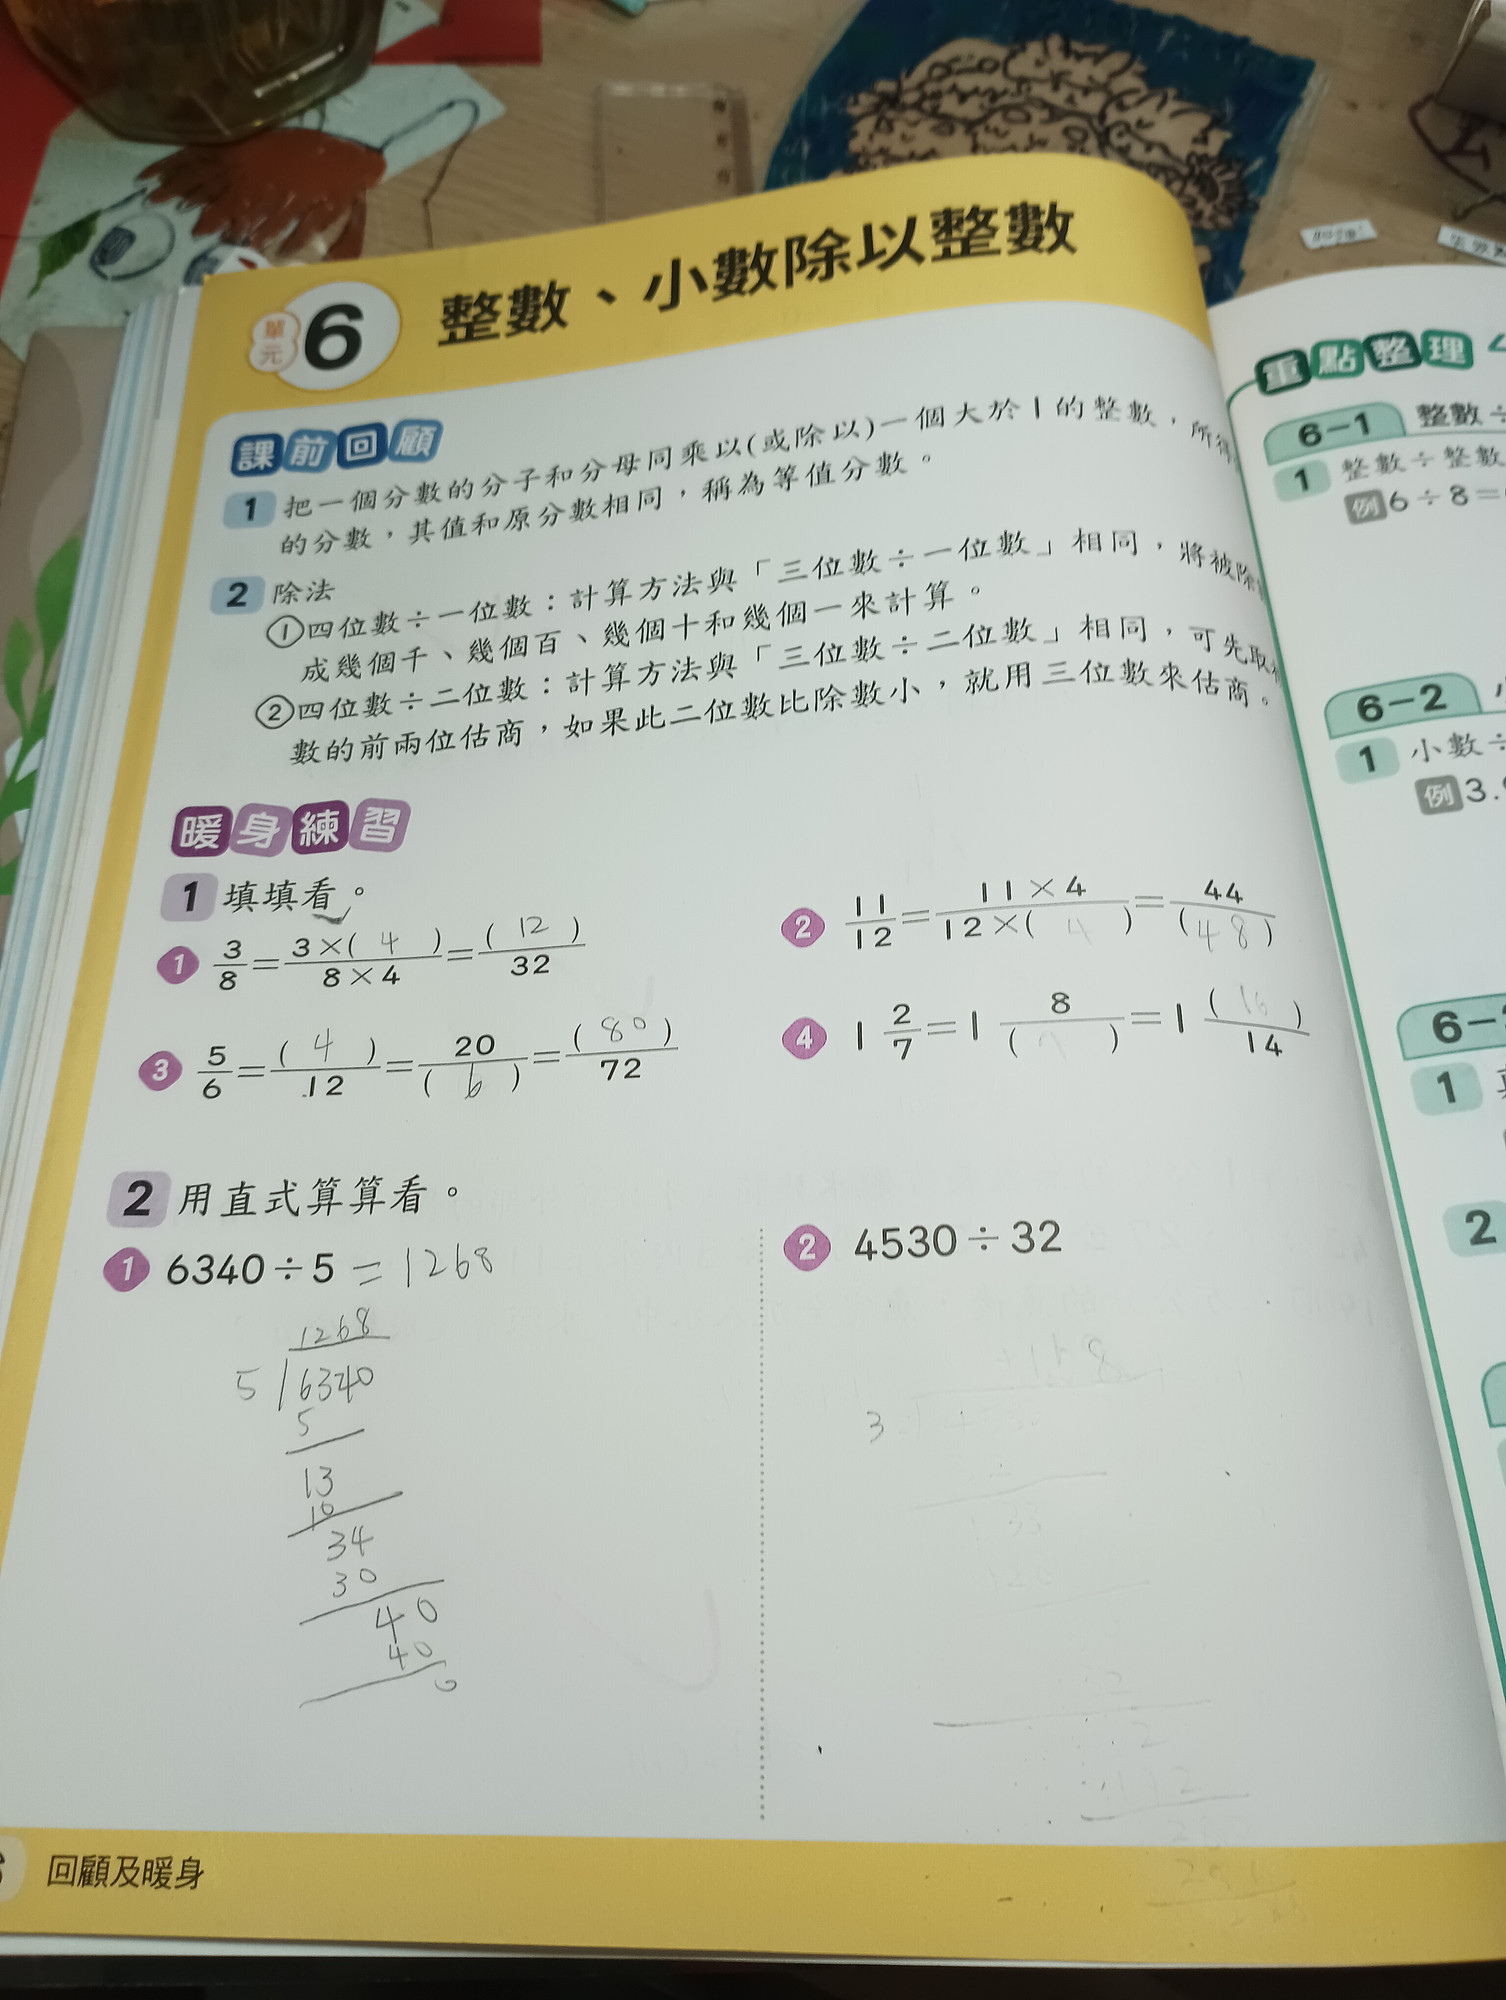 單元 6 整數、小數除以整數
課前回顧
1 把一個分數的分子和分母同乘以(或除以)一個大於1的整數，所得
的分數，其值和原分數相同，稱為等值分數。
2 除法
①四位數÷一位數：計算方法與「三位數÷一位數」相同，將被除
成幾個千、幾個百、幾個十和幾個一來計算。
②四位數÷二位數：計算方法與「三位數÷二位數」相同，可先取
數的前兩位估商，如果此二位數比除數小，就用三位數來估商。
暖身練習
1 填填看。
1 3/8=3×(4)/8×4=(12)/32
2 11/12=11×4/12×(4)=44/(48)
3 5/6=(4)/12=20/(6)=(80)/72
4 1 2/7=1 8/( )=1 (16)/14
2 用直式算算看。
1 6340÷5=1268
1268
5 6340
5
13
10
34
30
40
40
0
2 4530÷32
3
回顧及暖身
重點整理
6-1 整數÷
1 整數÷整數
例 6÷8=
6-2
1 小數÷
例 3.
6-
1
2